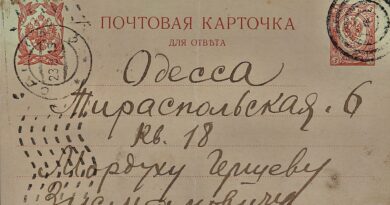 ПОЧТОВАЯ КАРТОЧКА
ДЛЯ ОТВѢТА
Одесса
Тираспольская. 6
кв. 18
Мордуху Герцеву